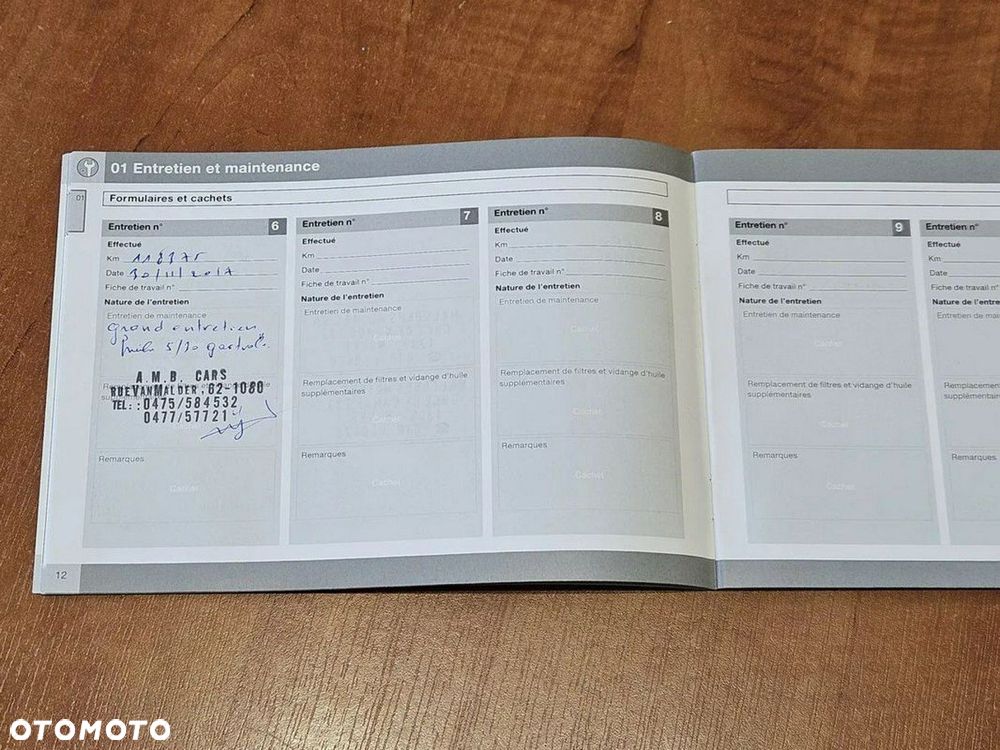 01 Entretien et maintenance
01
Formulaires et cachets
Entretien n° 6
Effectué
Km 118375
Date 30/11/2017
Fiche de travail n°
Nature de l'entretien
Entretien de maintenance
Grand entretien
5/30
A.M.B. CARS
RUE VAN MALDER, 62-1080
TEL: : 0475/584532
0477/57721
Remarques
Cachet
Entretien n° 7
Effectué
Km
Date
Fiche de travail n°
Nature de l'entretien
Entretien de maintenance
Cachet
Remplacement de filtres et vidange d'huile
supplémentaires
Cachet
Remarques
Cachet
Entretien n° 8
Effectué
Km
Date
Fiche de travail n°
Nature de l'entretien
Entretien de maintenance
Cachet
Remplacement de filtres et vidange d'huile
supplémentaires
Cachet
Remarques
Cachet
12
Entretien n° 9
Effectué
Km
Date
Fiche de travail n°
Nature de l'entretien
Entretien de maintenance
Cachet
Remplacement de filtres et vidange d'huile
supplémentaires
Cachet
Remarques
Cachet
Entretien n°
Effectué
Km
Date
Fiche de trav
Nature de l'entr
Entretien de mai
Remplacement
supplémentaires
Remarques
OTOMOTO